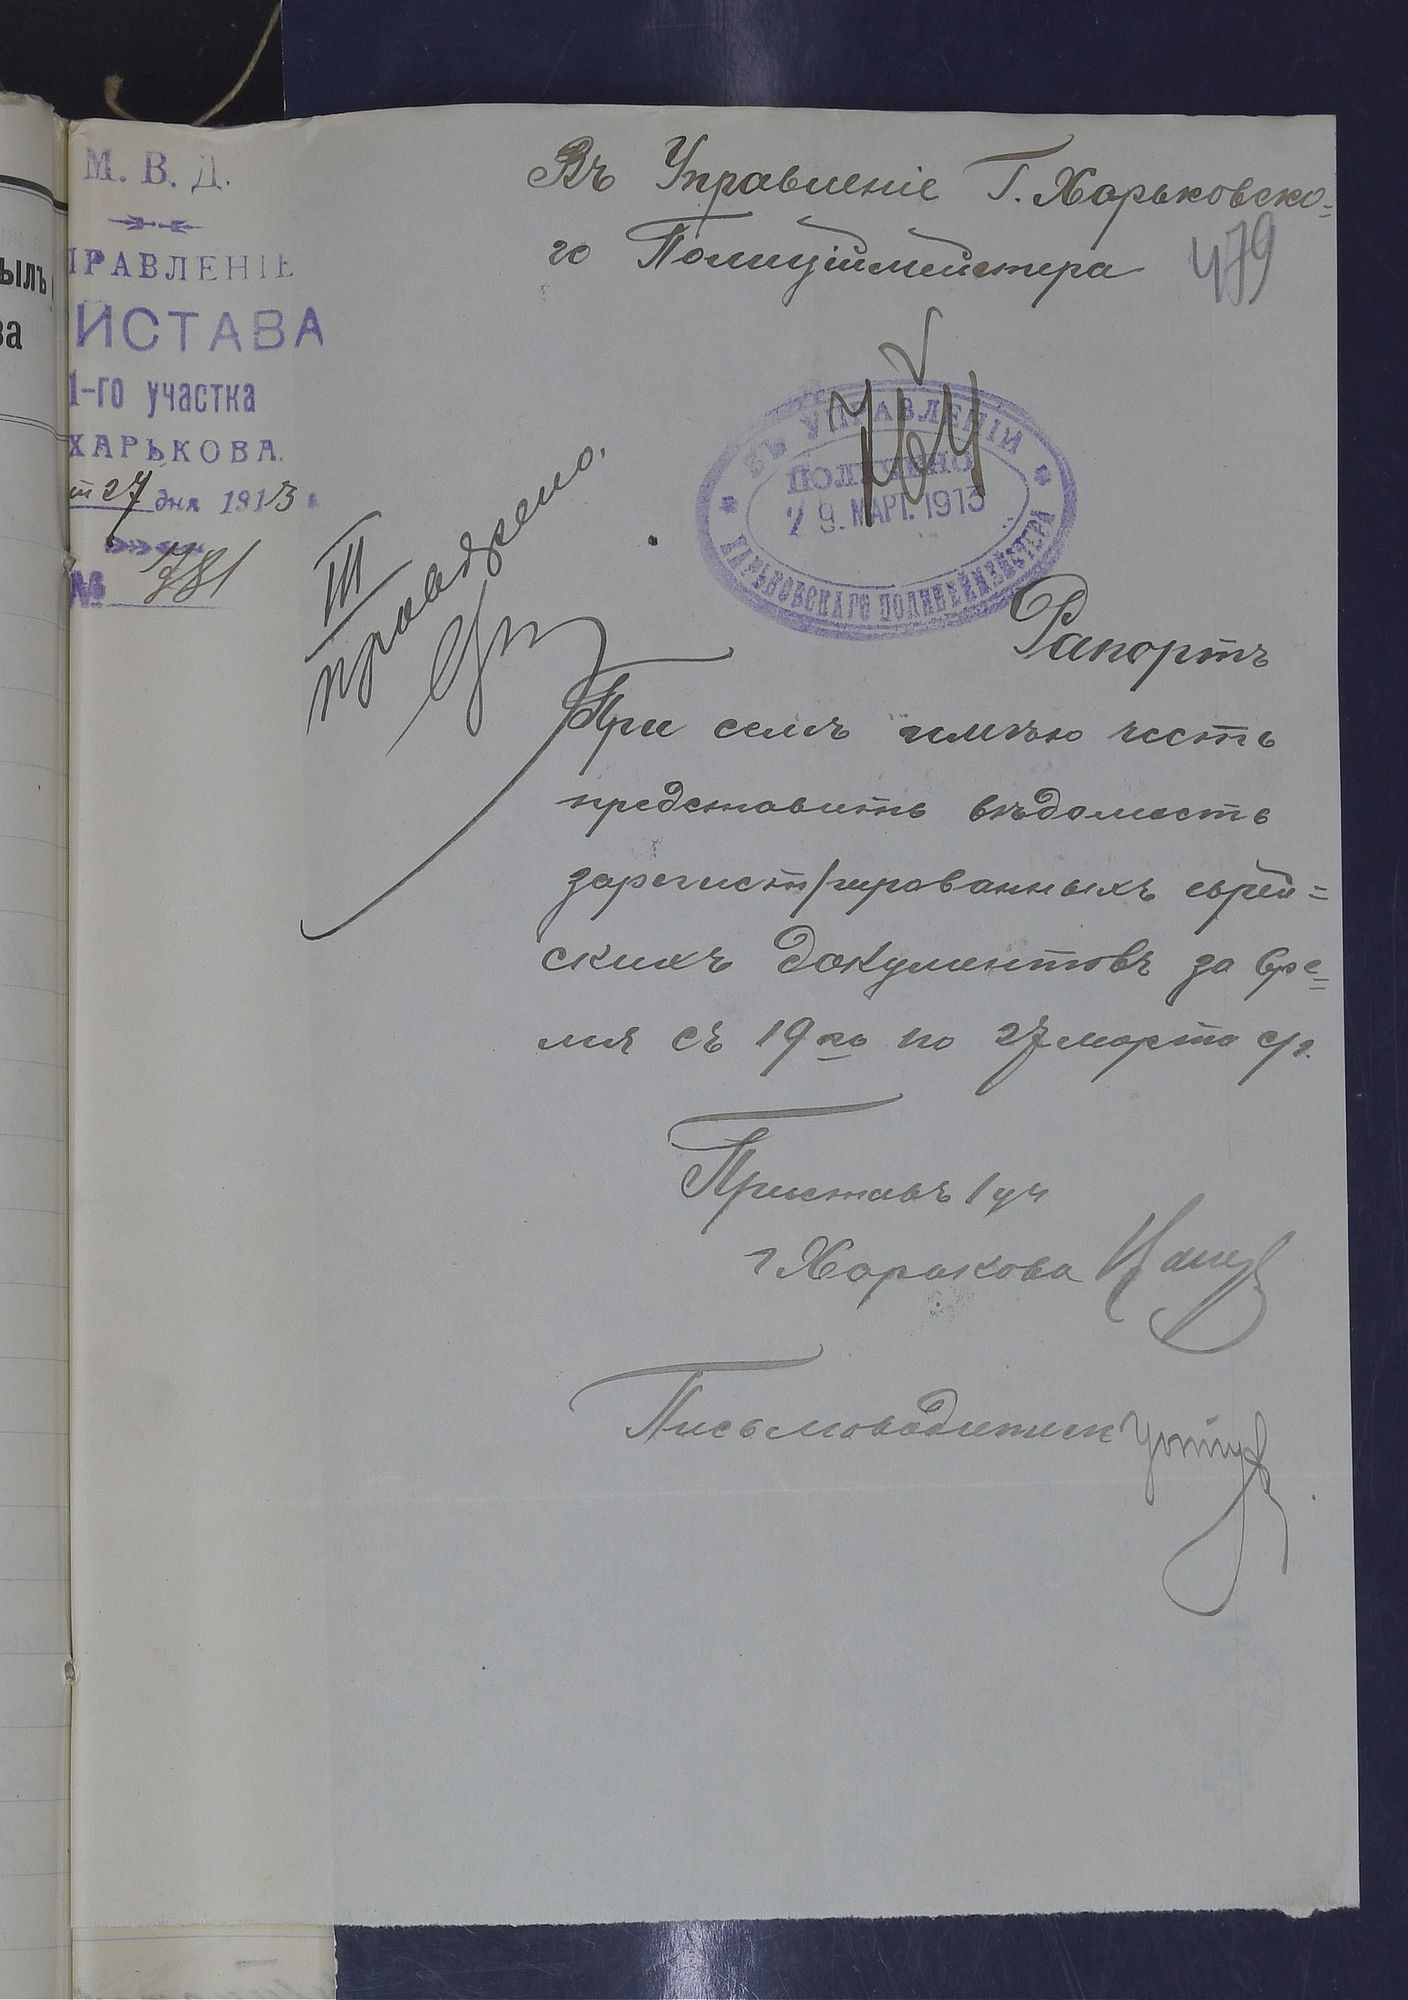 М. В. Д.
ПРАВЛЕНІЕ
ИСТАВА
1-го участка
ХАРЬКОВА.
27 дня 1913
№ 781
ылъ
ва
Въ Управленіе Г. Харьковско=
го Полиціймейстера
479
ВЪ УПРАВЛЕНІИ
ПОЛУЧЕНО
29. МАРТ. 1913
ХАРЬКОВСКАГО ПОЛИЦЕЙМЕЙСТЕРА
III
Рапортъ
При семъ имѣю честь
представить вѣдомость
зарегист/рированныхъ еврей=
скихъ документовъ за вре=
мя съ 19го по 27 марта с/г.
Приставъ 1 уч
г Харькова
Письмоводитель